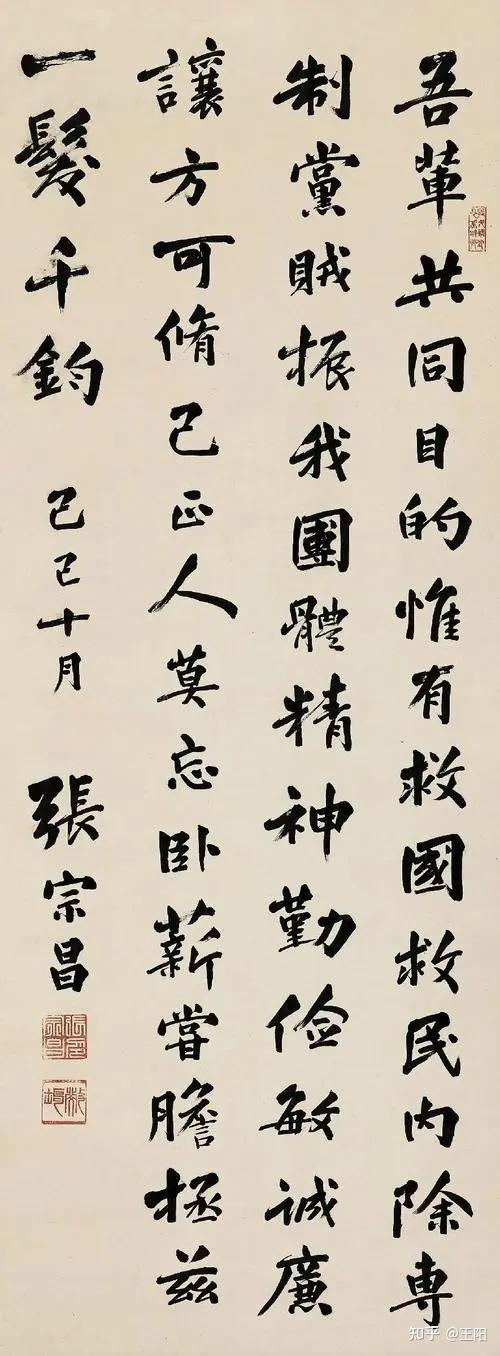 吾軰共同目的惟有救國救民内除専
制黨賊振我團體精神勤儉敏誠廉
讓方可脩己正人莫忘卧薪嘗膽拯兹
一髮千鈞
己巳十月
張宗昌
知乎 @王阳